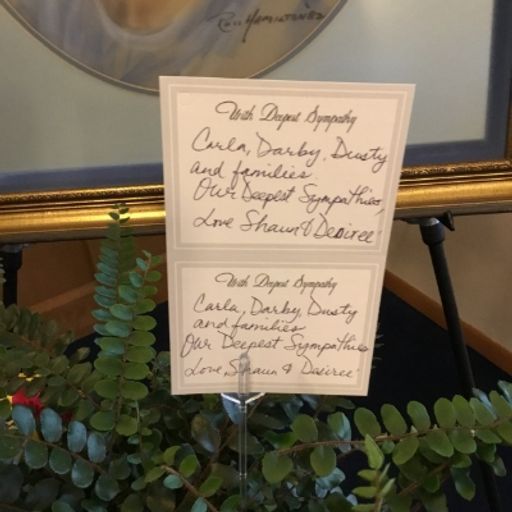 With Deepest Sympathy
Carla, Darby, Dusty
and families.
Our Deepest Sympathies,
Love Shaun & Desiree'
With Deepest Sympathy
Carla, Darby, Dusty
and families
Our Deepest Sympathies
Love, Shaun & Desiree'